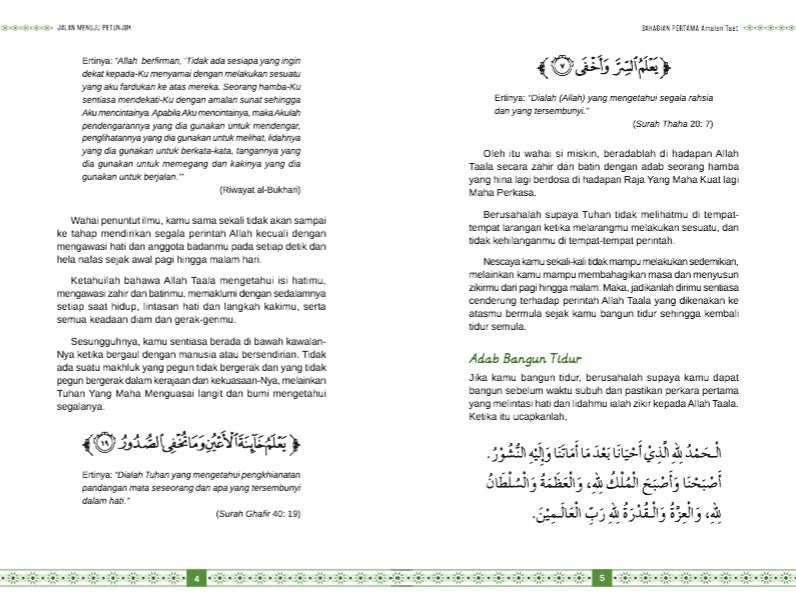 JALAN MENUJU PETUNJUK
Ertinya: “Allah berfirman, ‘Tidak ada sesiapa yang ingin
dekat kepada-Ku menyamai dengan melakukan sesuatu
yang aku fardukan ke atas mereka. Seorang hamba-Ku
sentiasa mendekati-Ku dengan amalan sunat sehingga
Aku mencintainya. Apabila Aku mencintainya, maka Akulah
pendengarannya yang dia gunakan untuk mendengar,
penglihatannya yang dia gunakan untuk melihat, lidahnya
yang dia gunakan untuk berkata-kata, tangannya yang
dia gunakan untuk memegang dan kakinya yang dia
gunakan untuk berjalan.’”
(Riwayat al-Bukhari)
Wahai penuntut ilmu, kamu sama sekali tidak akan sampai
ke tahap mendirikan segala perintah Allah kecuali dengan
mengawasi hati dan anggota badanmu pada setiap detik dan
hela nafas sejak awal pagi hingga malam hari.
Ketahuilah bahawa Allah Taala mengetahui isi hatimu,
mengawasi zahir dan batinmu, memaklumi dengan sedalamnya
setiap saat hidup, lintasan hati dan langkah kakimu, serta
semua keadaan diam dan gerak-gerimu.
Sesungguhnya, kamu sentiasa berada di bawah kawalan-
Nya ketika bergaul dengan manusia atau bersendirian. Tidak
ada suatu makhluk yang pegun tidak bergerak dan yang tidak
pegun bergerak dalam kerajaan dan kekuasaan-Nya, melainkan
Tuhan Yang Maha Menguasai langit dan bumi mengetahui
segalanya.
﴿يَعْلَمُ خَآئِنَةَ ٱلْأَعْيُنِ وَمَا تُخْفِى ٱلصُّدُورُ ١٩﴾
Ertinya: “Dialah Tuhan yang mengetahui pengkhianatan
pandangan mata seseorang dan apa yang tersembunyi
dalam hati.”
(Surah Ghafir 40: 19)
4
BAHAGIAN PERTAMA Amalan Taat
﴿يَعْلَمُ ٱلسِّرَّ وَأَخْفَى ٧﴾
Ertinya: “Dialah (Allah) yang mengetahui segala rahsia
dan yang tersembunyi.”
(Surah Thaha 20: 7)
Oleh itu wahai si miskin, beradablah di hadapan Allah
Taala secara zahir dan batin dengan adab seorang hamba
yang hina lagi berdosa di hadapan Raja Yang Maha Kuat lagi
Maha Perkasa.
Berusahalah supaya Tuhan tidak melihatmu di tempat-
tempat larangan ketika melarangmu melakukan sesuatu, dan
tidak kehilanganmu di tempat-tempat perintah.
Nescaya kamu sekali-kali tidak mampu melakukan sedemikian,
melainkan kamu mampu membahagikan masa dan menyusun
zikirmu dari pagi hingga malam. Maka, jadikanlah dirimu sentiasa
cenderung terhadap perintah Allah Taala yang dikenakan ke
atasmu bermula sejak kamu bangun tidur sehingga kembali
tidur semula.
Adab Bangun Tidur
Jika kamu bangun tidur, berusahalah supaya kamu dapat
bangun sebelum waktu subuh dan pastikan perkara pertama
yang melintasi hati dan lidahmu ialah zikir kepada Allah Taala.
Ketika itu ucapkanlah,
الْـحَمْدُ لِلهِ الَّذِيْ أَحْيَانَا بَعْدَ مَا أَمَاتَنَا وَإِلَيْهِ النُّشُوْرُ.
أَصْبَحْنَا وَأَصْبَحَ الْمُلْكُ لِلهِ، وَالْعَظَمَةُ وَالْسُّلْطَانُ
لِلهِ، وَالْعِزَّةُ وَالْـقُدْرَةُ لِلهِ رَبِّ الْعَالَـمِيْنَ.
5